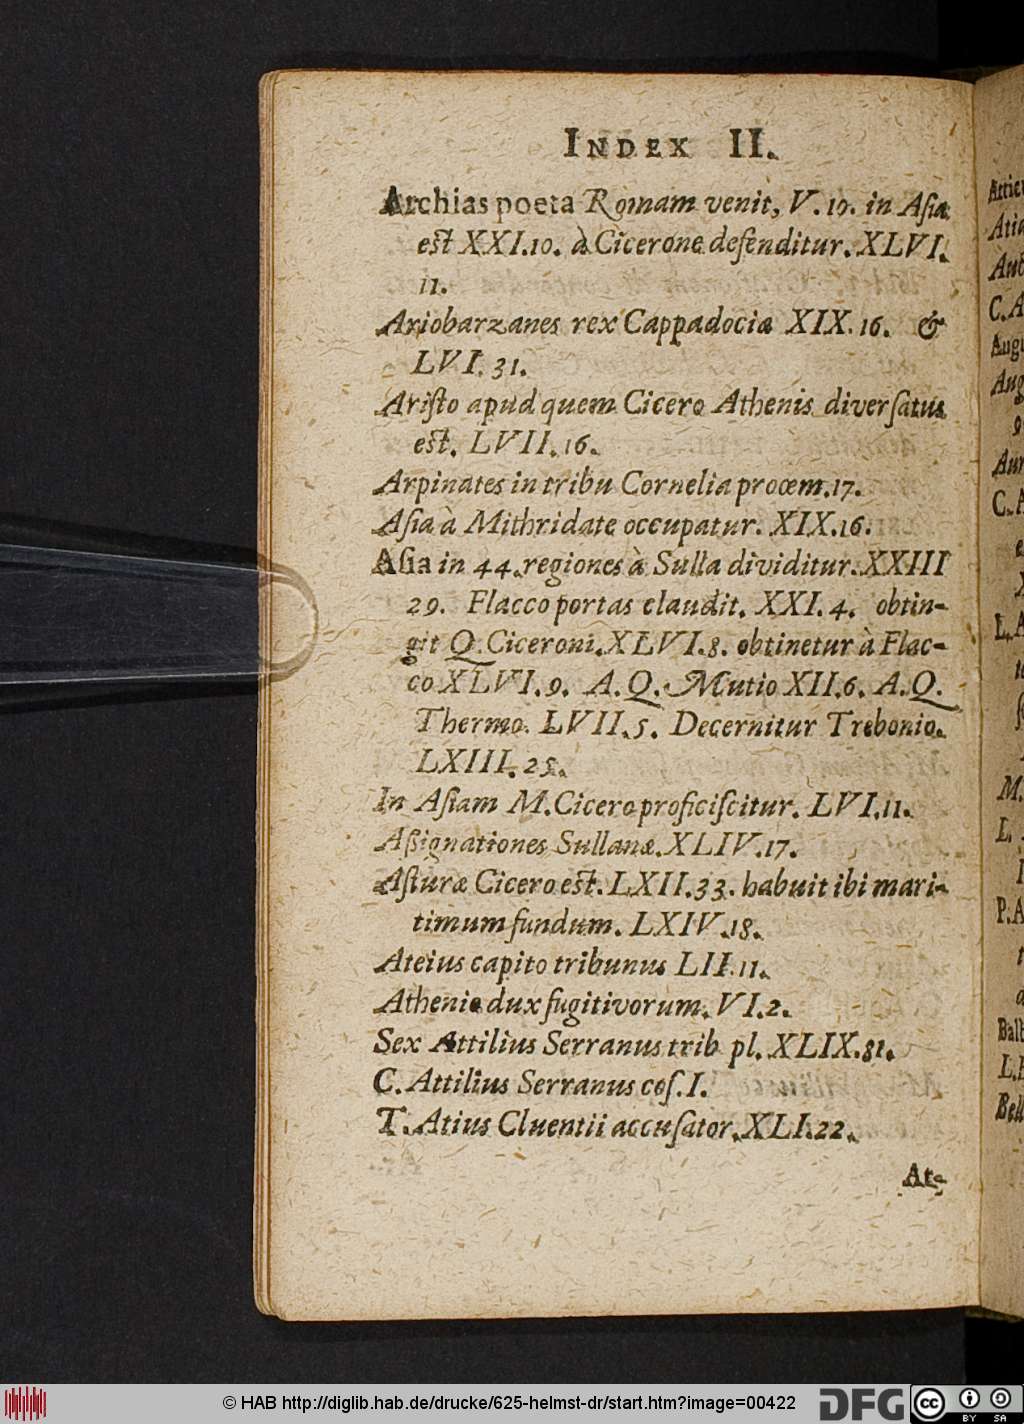 INDEX II.
Archias poeta Romam venit, V. 19. in Aſia
est XXI.10. à Cicerone defenditur. XLVI.
11.
Ariobarzanes rex Cappadociæ XIX. 16. &
LVI. 31.
Ariſto apud quem Cicero Athenis diverſatus
est. LVII. 16.
Arpinates in tribu Cornelia proœm. 17.
Aſia à Mithridate occupatur. XIX. 16.
Aſia in 44. regiones à Sulla dividitur. XXIII
29. Flacco portas claudit. XXI. 4. obtin-
git Q. Ciceroni. XLVI. 8. obtinetur à Flac-
co XLVI. 9. A. Q. Mutio XII. 6. A. Q.
Thermo. LVII. 5. Decernitur Trebonio.
LXIII. 25.
In Aſiam M. Cicero proficiſcitur. LVI. 11.
Aßignationes Sullanæ. XLIV. 17.
Aſturæ Cicero est. LXII. 33. habuit ibi mari-
timum fundum. LXIV. 18.
Ateius capito tribunus LII. 11.
Athenio dux fugitivorum. VI. 2.
Sex Attilius Serranus trib pl. XLIX. 81.
C. Attilius Serranus coſ. I.
T. Atius Cluentii accuſator. XLI. 22.
At-
© HAB http://diglib.hab.de/drucke/625-helmst-dr/start.htm?image=00422
DFG
cc BY SA